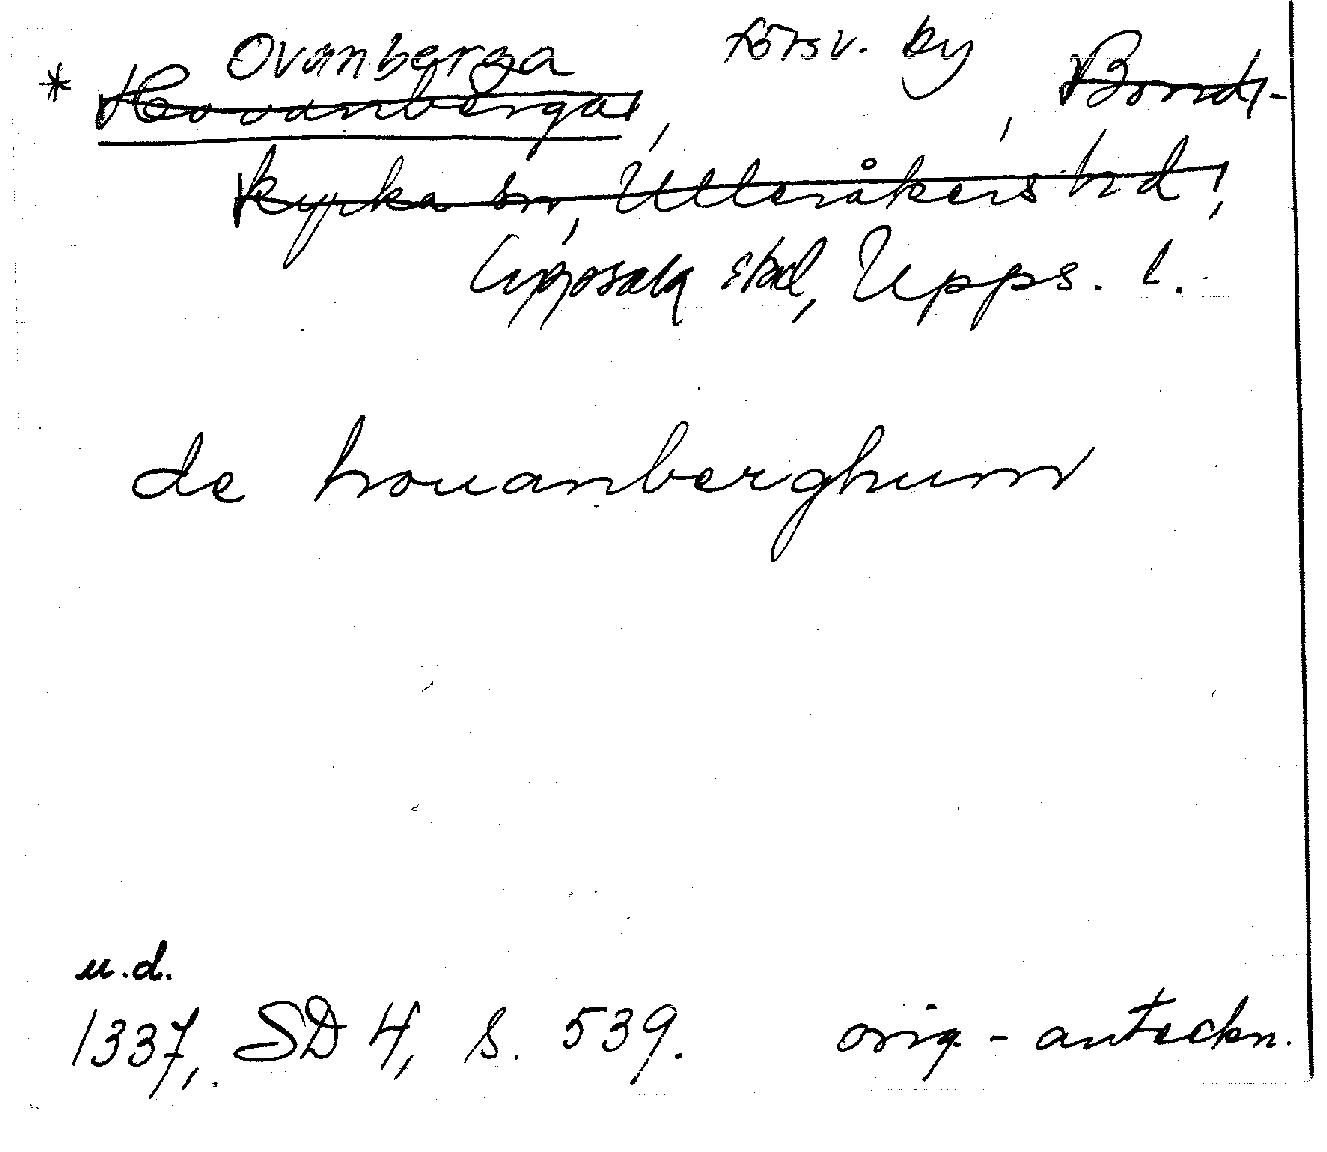 Ovanberga försv. by
* Hovanberga, , Bond-
kyrka sn, Ulleråkers hd,
Uppsala stad, Upps. l.
de houanberghum
u.d.
1337, SD 4, s. 539. orig-anteckn.